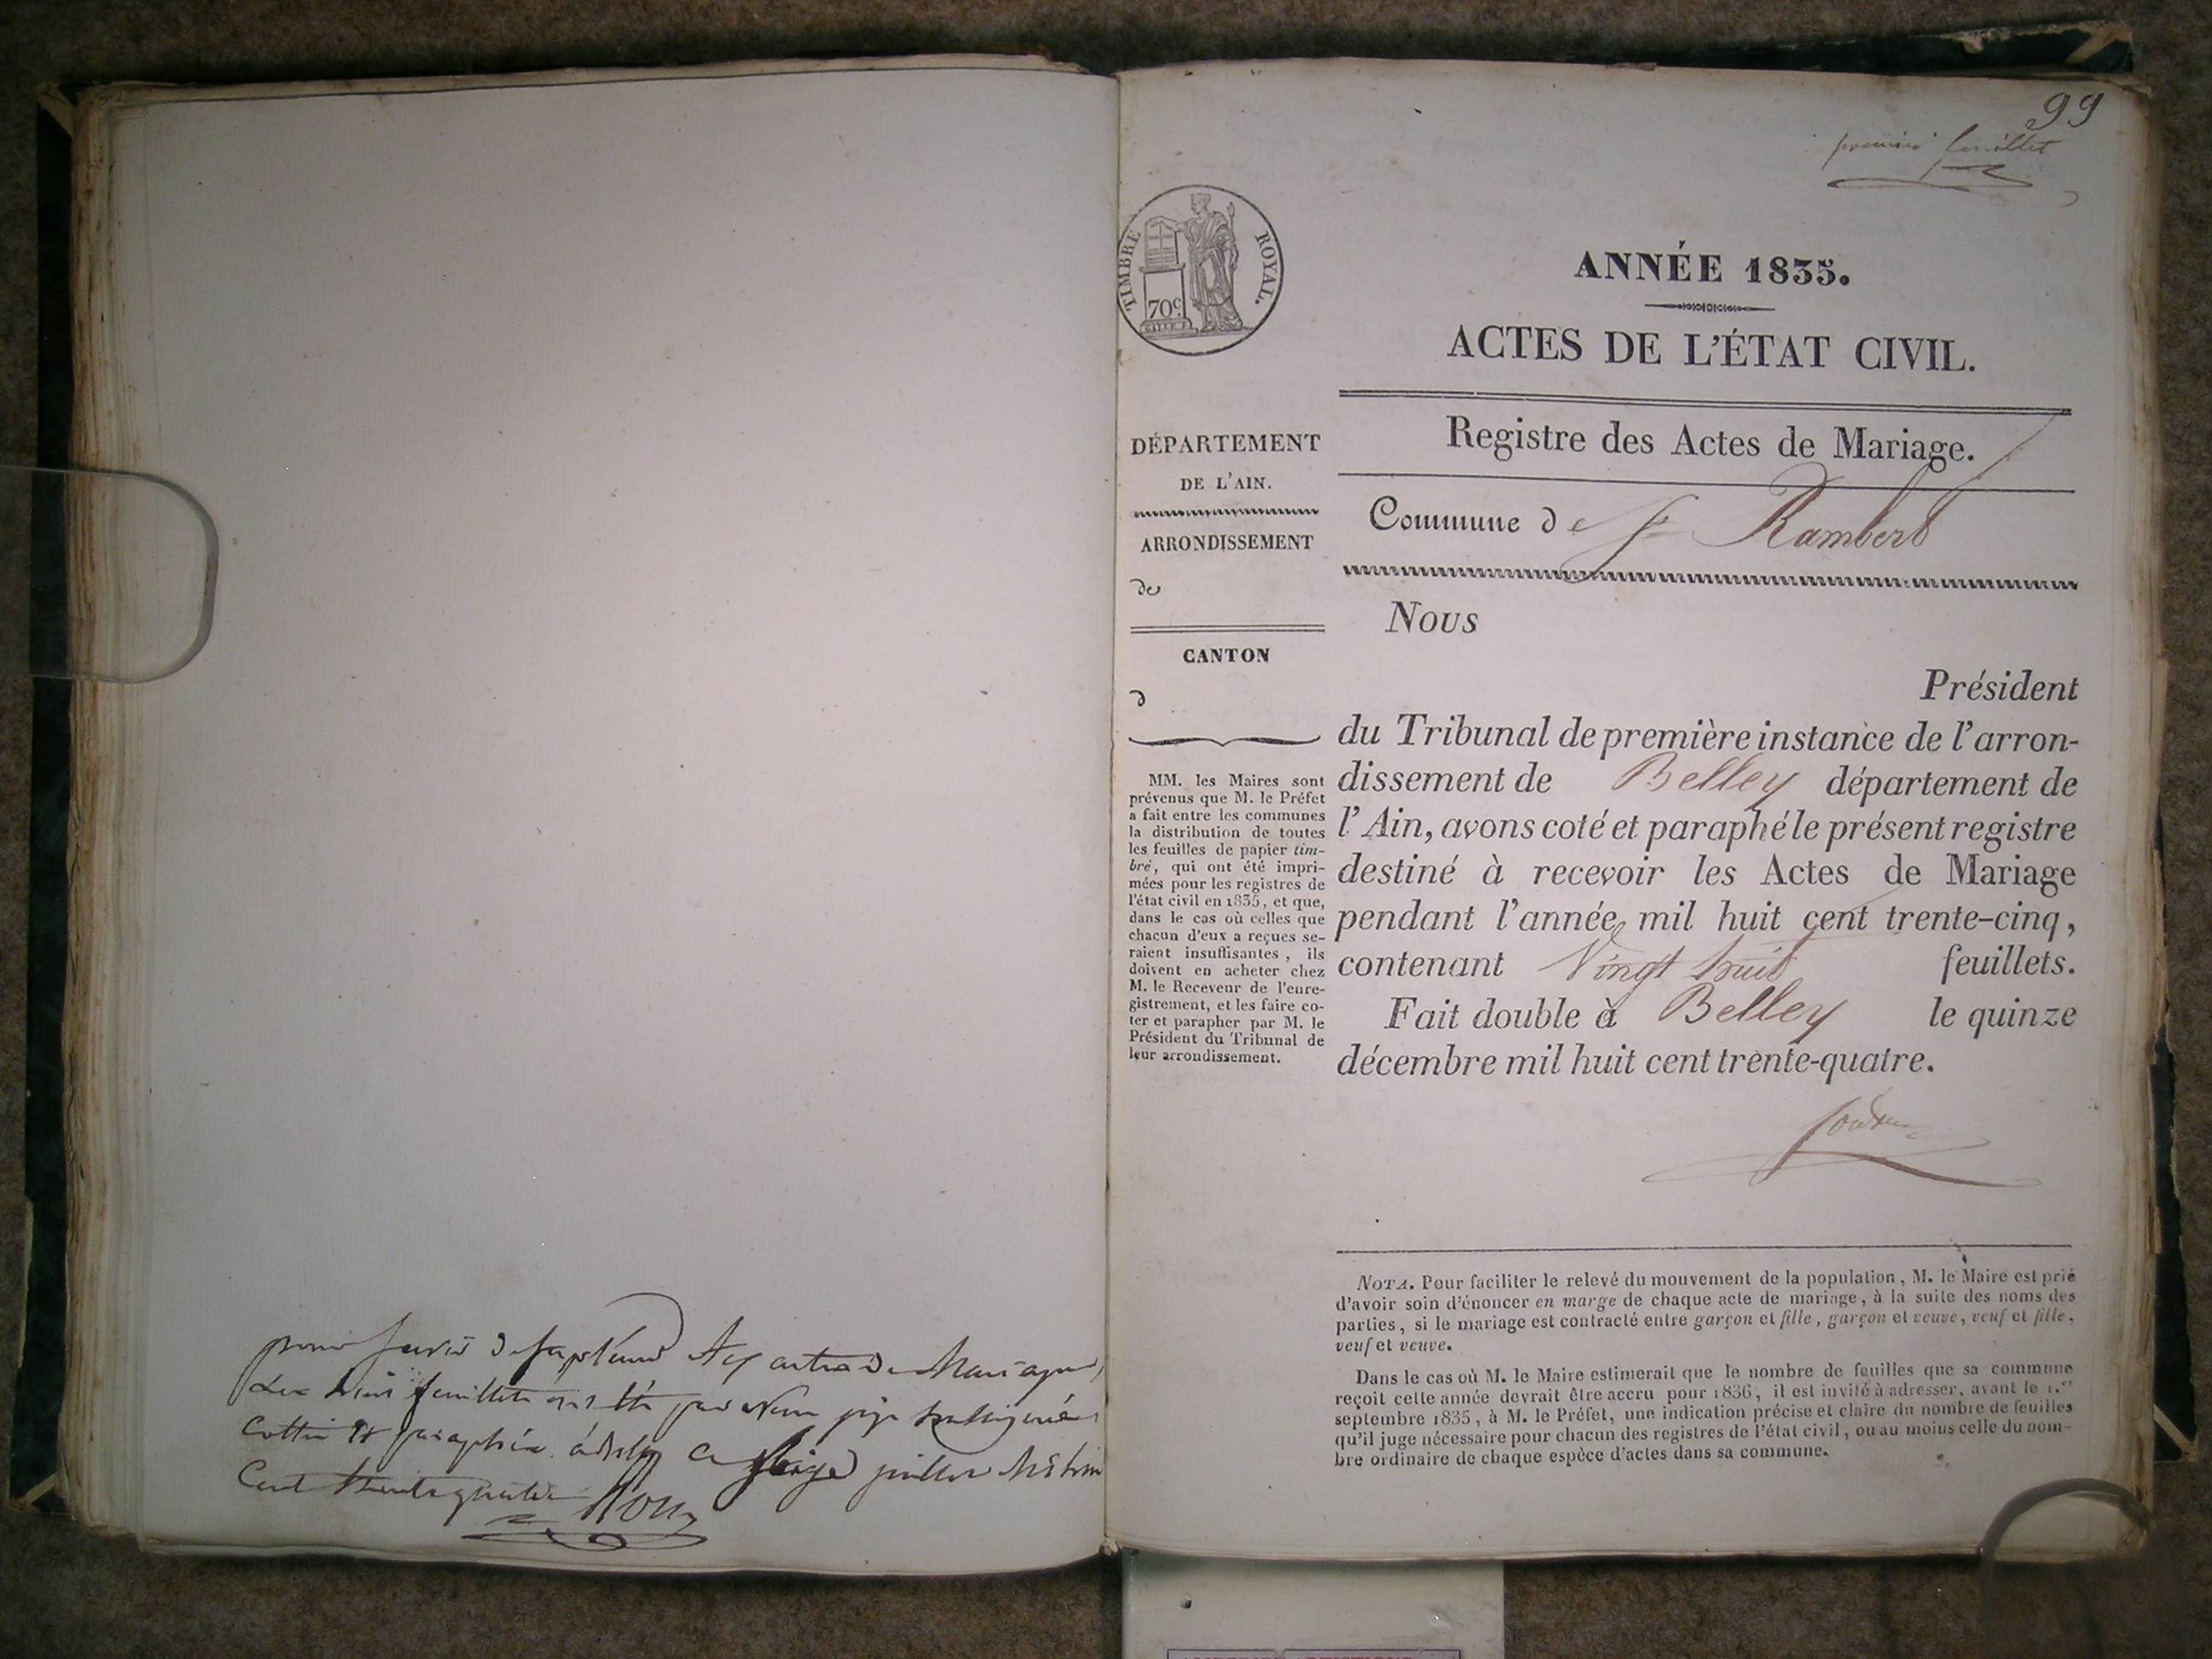 pour servir de supplément aux actes de Mariages
Les huit feuillets ont été par Nous juge soussigné
cottés et paraphés à Belley ce seize juillet Mil huit
Cent trente quatre
99
premier feuillet
TIMBRE ROYAL.
70c
ANNÉE 1835.
ACTES DE L'ÉTAT CIVIL.
Registre des Actes de Mariage.
Commune de St Rambert
DÉPARTEMENT
DE L'AIN.
ARRONDISSEMENT
de
CANTON
d
MM. les Maires sont
prévenus que M. le Préfet
a fait entre les communes
la distribution de toutes
les feuilles de papier tim-
bré, qui ont été impri-
mées pour les registres de
l'état civil en 1835, et que,
dans le cas où celles que
chacun d'eux a reçues se-
raient insuffisantes, ils
doivent en acheter chez
M. le Receveur de l'enre-
gistrement, et les faire co-
ter et parapher par M. le
Président du Tribunal de
leur arrondissement.
Nous
Président
du Tribunal de première instance de l'arron-
dissement de Belley département de
l'Ain, avons coté et paraphé le présent registre
destiné à recevoir les Actes de Mariage
pendant l'année mil huit cent trente-cinq,
contenant Vingt huit feuillets.
Fait double à Belley le quinze
décembre mil huit cent trente-quatre.
NOTA. Pour faciliter le relevé du mouvement de la population, M. le Maire est prié
d'avoir soin d'énoncer en marge de chaque acte de mariage, à la suite des noms des
parties, si le mariage est contracté entre garçon et fille, garçon et veuve, veuf et fille,
veuf et veuve.
Dans le cas où M. le Maire estimerait que le nombre de feuilles que sa commune
reçoit cette année devrait être accru pour 1836, il est invité à adresser, avant le 1.er
septembre 1835, à M. le Préfet, une indication précise et claire du nombre de feuilles
qu'il juge nécessaire pour chacun des registres de l'état civil, ou au moins celle du nom-
bre ordinaire de chaque espèce d'actes dans sa commune.